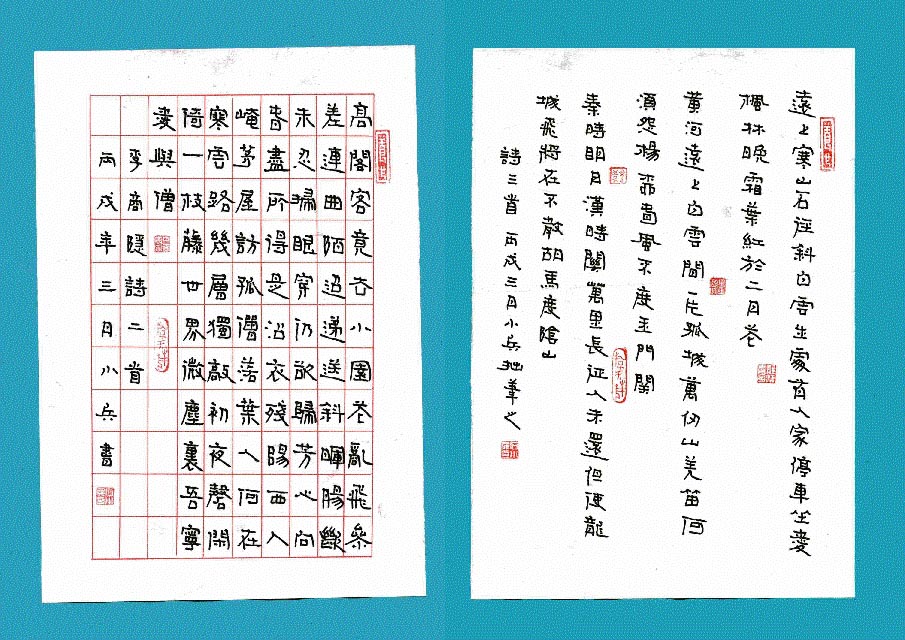 遠上寒山石徑斜白雲生處有人家停車坐愛
楓林晚霜葉紅於二月花
黃河遠上白雲間一片孤城萬仞山羌笛何
須怨楊柳春風不度玉門關
秦時明月漢時關萬里長征人未還但使龍
城飛將在不教胡馬度陰山
詩三首 丙戌三月小兵拙筆之
高閣客竟去小園花亂飛參
差連曲陌迢遞送斜暉腸斷
未忍掃眼穿仍欲歸芳心向
春盡所得是沾衣殘陽西入
崦茅屋訪孤僧落葉人何在
寒雲路幾層獨敲初夜磬閑
倚一枝藤世界微塵裏吾寧
愛與僧
李商隱詩二首
丙戌年三月小兵書